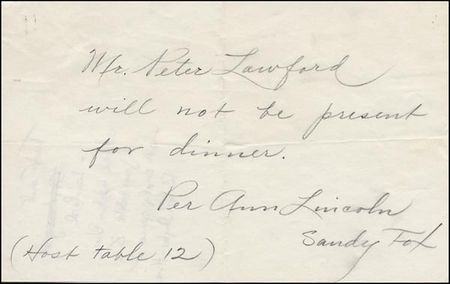 Mr. Peter Lawford
will not be present
for dinner.
Per Ann Lincoln
Sandy Fox
(Host table 12)